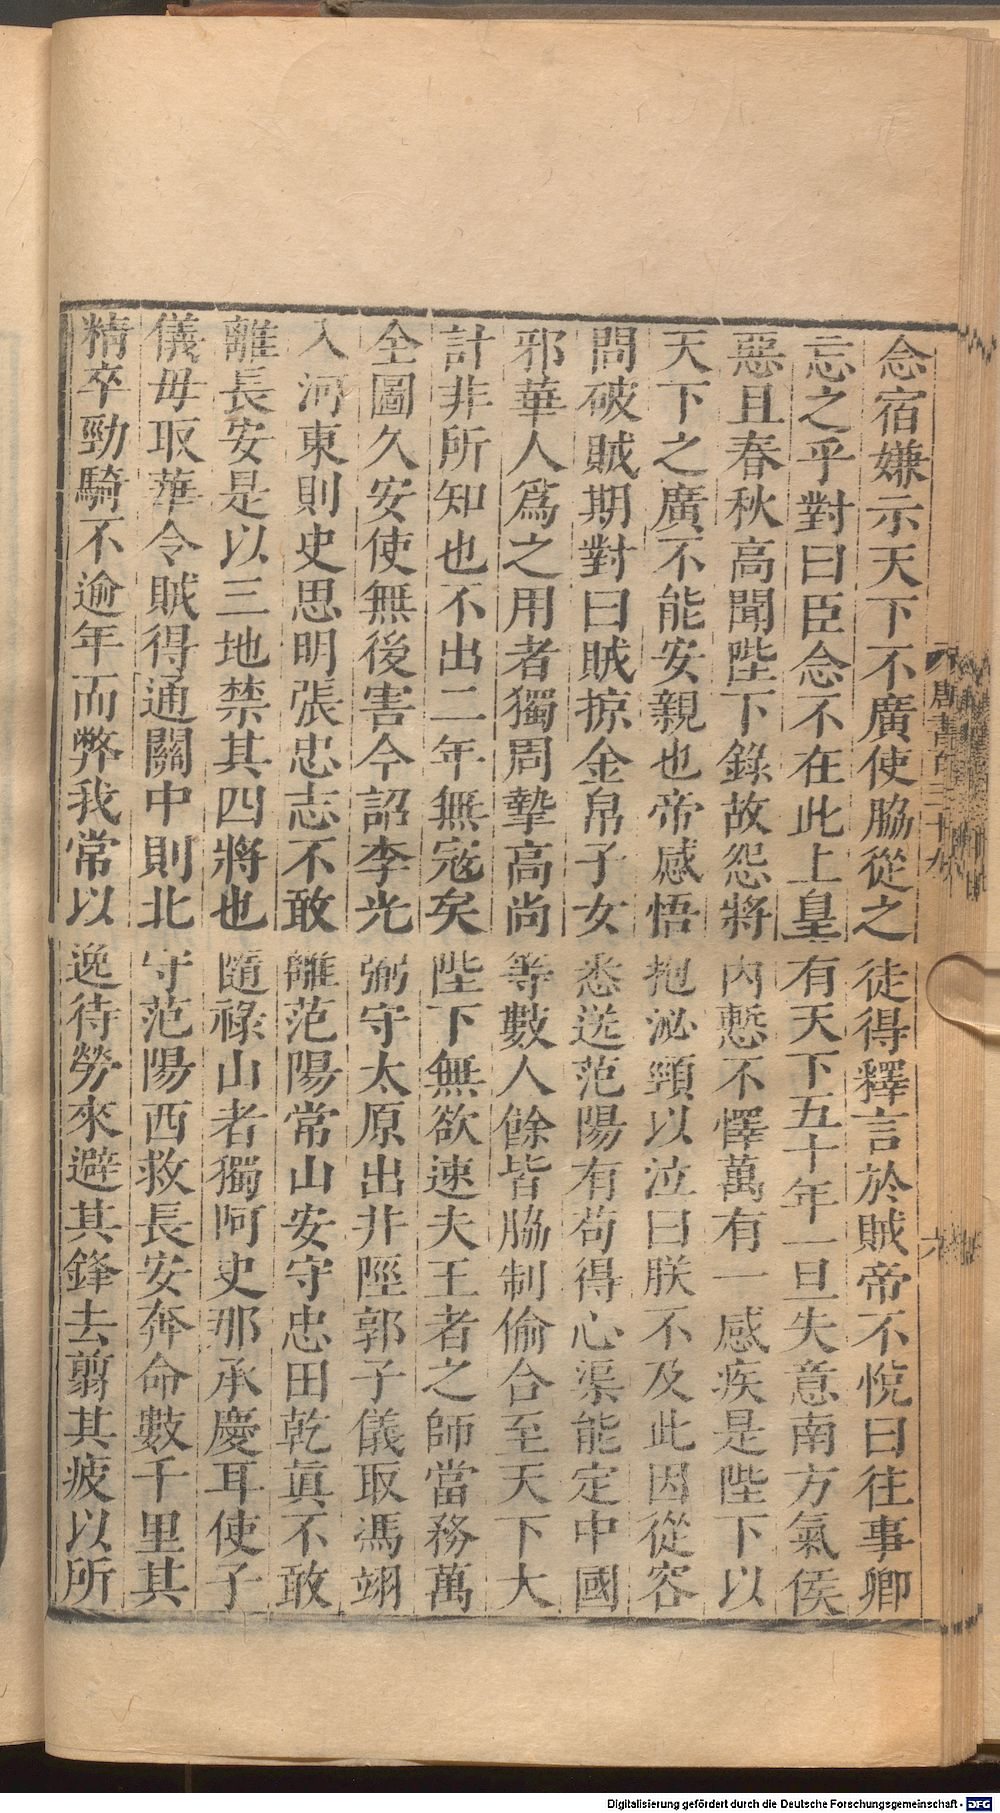 念宿嫌示天下不廣使脇從之徒得釋言於賊帝不悅曰往事卿
忘之乎對曰臣念不在此上皇有天下五十年一旦失意南方氣侯
惡且春秋高聞陛下錄故怨將內慙不懌萬有一感疾是陛下以
天下之廣不能安親也帝感悟抱泌頸以泣曰朕不及此因從容
問破賊期對曰賊掠金帛子女悉送范陽有苟得心渠能定中國
邪華人爲之用者獨周摯高尚等數人餘皆脇制偷合至天下大
計非所知也不出二年無寇矣陛下無欲速夫王者之師當務萬
全圖久安使無後害今詔李光弼守太原出井陘郭子儀取馮翊
入河東則史思明張忠志不敢離范陽常山安守忠田乾眞不敢
離長安是以三地禁其四將也隨祿山者獨阿史那承慶耳使子
儀毋取華令賊得通關中則北守范陽西救長安奔命數千里其
精卒勁騎不逾年而弊我常以逸待勞來避其鋒去翦其疲以所
唐書百三十九
六
Digitalisierung gefördert durch die Deutsche Forschungsgemeinschaft - DFG